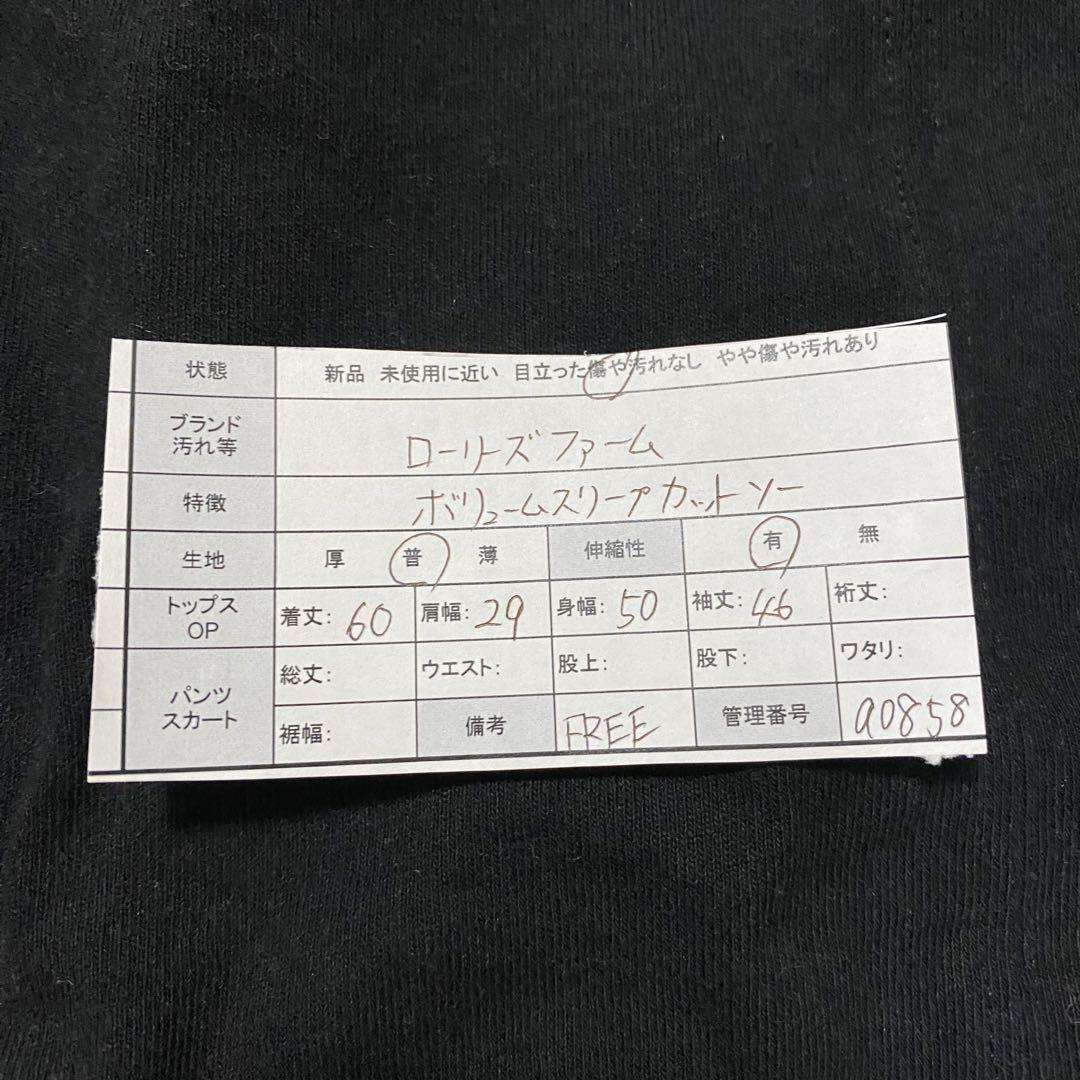 状態 新品 未使用に近い 目立った傷や汚れなし やや傷や汚れあり
ブランド
汚れ等
ローリーズファーム
特徴 ボリュームスリーブカットソー
生地 厚 普 薄 伸縮性 有 無
トップス
OP
着丈: 60 肩幅: 29 身幅: 50 袖丈: 46 裄丈:
パンツ
スカート
総丈: ウエスト: 股上: 股下: ワタリ:
裾幅: 備考 FREE 管理番号 a0858